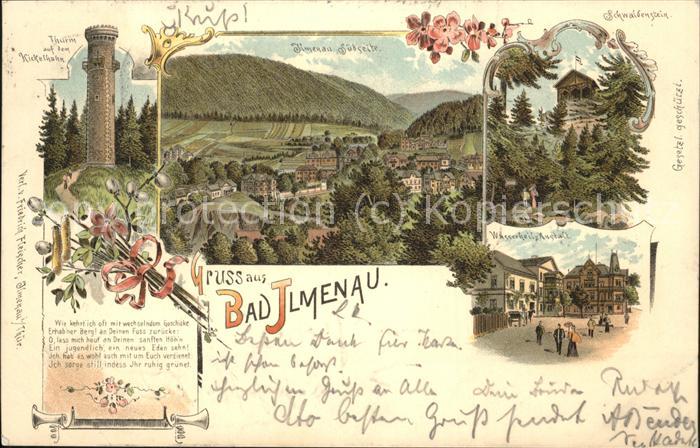 Gruß!
Thurm
auf dem
Kickelhahn.
Ilmenau, Südseite.
Schwalbenstein.
Gesetzl. geschützt.
Verl. v. Friedrich Fleischer, Ilmenau/Thür.
Wasserheil-Anstalt
GRUSS aus
BAD ILMENAU.
Wie kehrt ich oft mit wechselndem Geschicke
Erhabner Berg! an Deinen Fuss zurücke;
O, lass mich heut an Deinen sanften Höh'n
Ein jugendlich, ein neues Eden seh'n!
Ich hab es wohl auch mit um Euch verdienet:
Ich sorge still, indess Ihr ruhig grünet.
Besten Dank für Karte.
ist schon besorgt.
herzlichen Gruß an Alle Dein Bruder Rudolf
besten Gruß sendet
imago-images.de